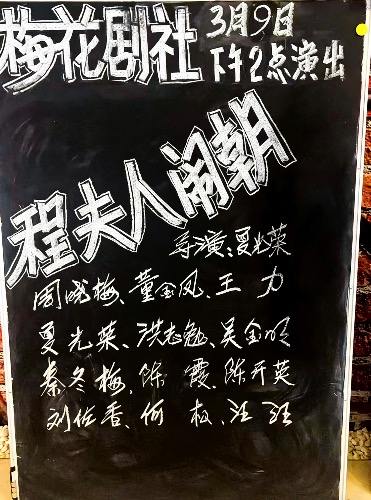 梅花剧社 3月9日
下午2点演出
程夫人闹朝
导演:夏光荣
周晓梅、董金凤、王 力
夏光荣、洪志勉、吴金明
秦冬梅、陈 霞、陈开英
刘佐香、何 权、